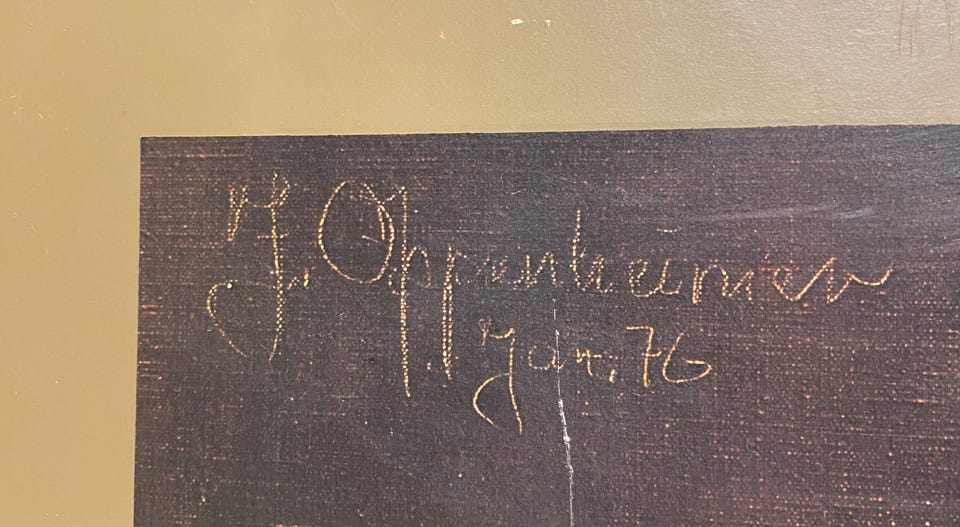 J. Oppenheimer
Jan. 76